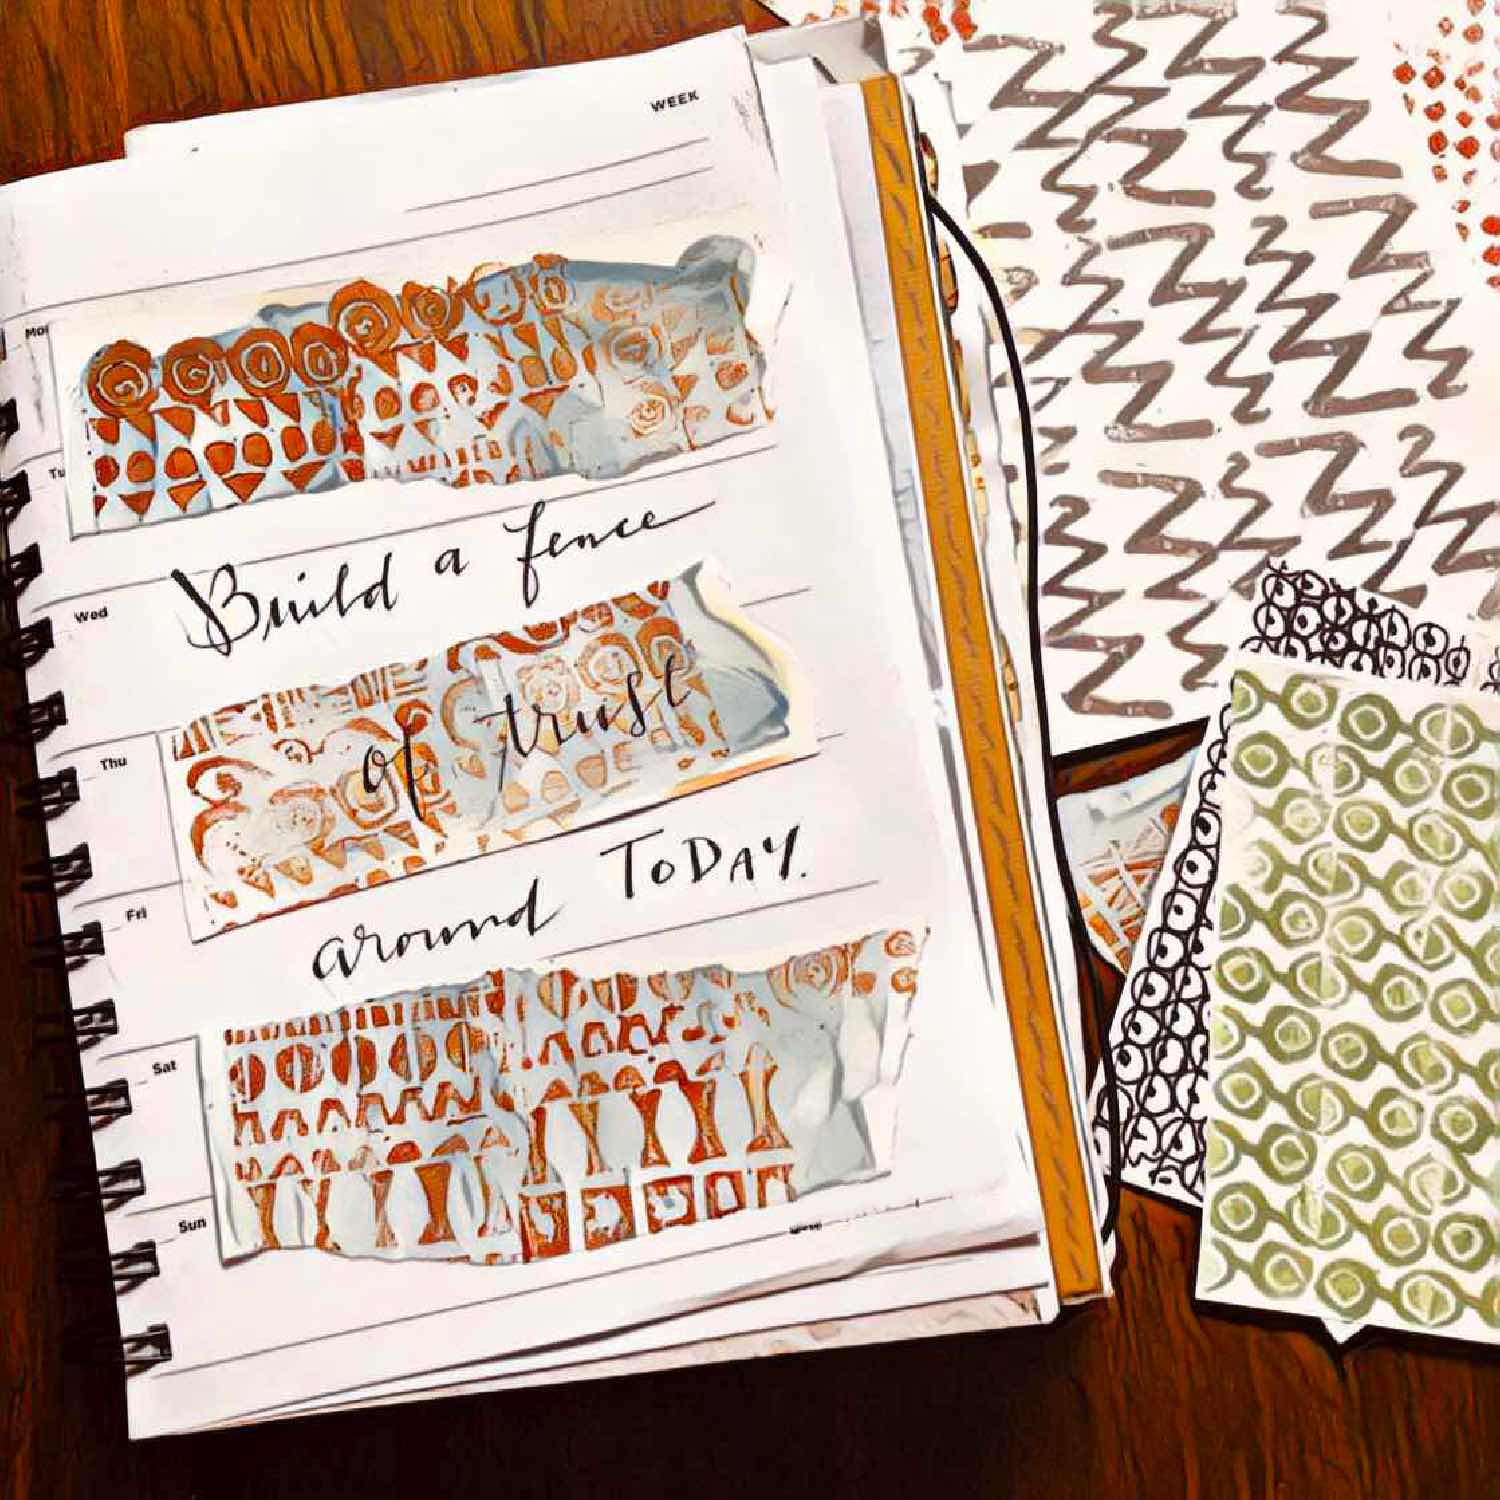 WEEK
Mon
Tu
Build a fence
Wed
of trust
Thu
around TODAY.
Fri
Sat
Sun